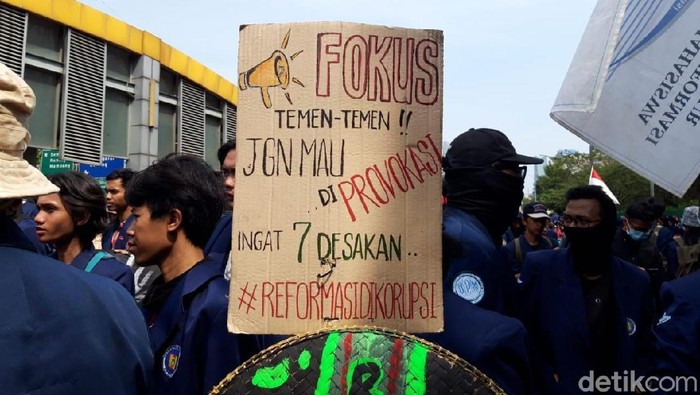 FOKUS
TEMEN-TEMEN !!
JGN MAU
DI PROVOKASI
INGAT 7 DESAKAN..
#REFORMASIDIKORUPSI
MAHASISWA
FORMASI
detikcom